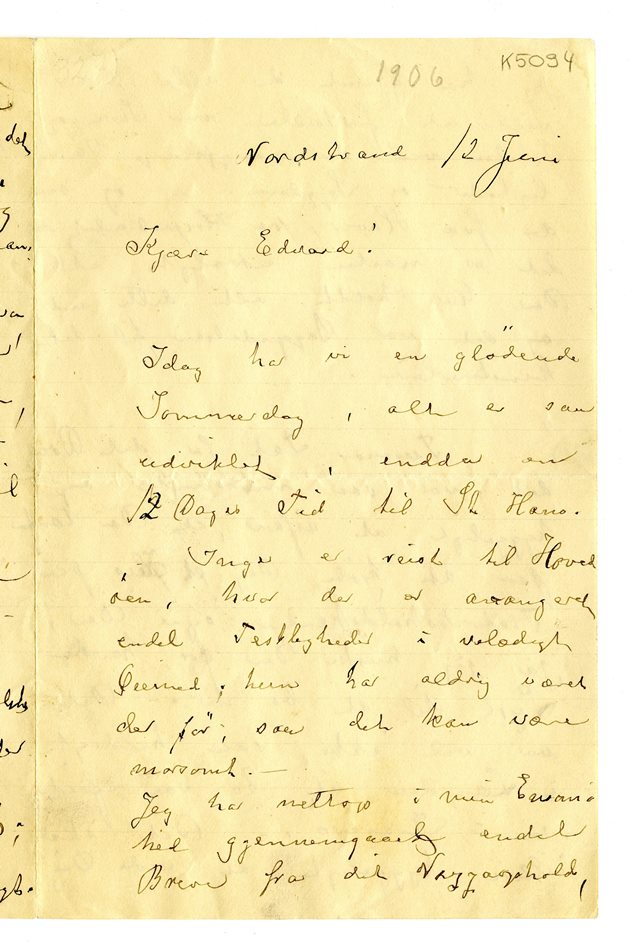 1906
K5094
Nordstrand 12 Juni
Kjære Edvard!
Idag har vi en glödende
Sommerdag, alt er saa
udviklet, endda en
12 Dages Tid til St Hans.
Inger er reist til Hoved
öen, hvor der er arrangeret
endel Festligheder i veldædigt
Øiemed; hun har aldrig været
der før, saa det kan være
morsomt. —
Jeg har nettop i min Ensom-
hed gjennemgaaet endel
Breve fra dit ophold,